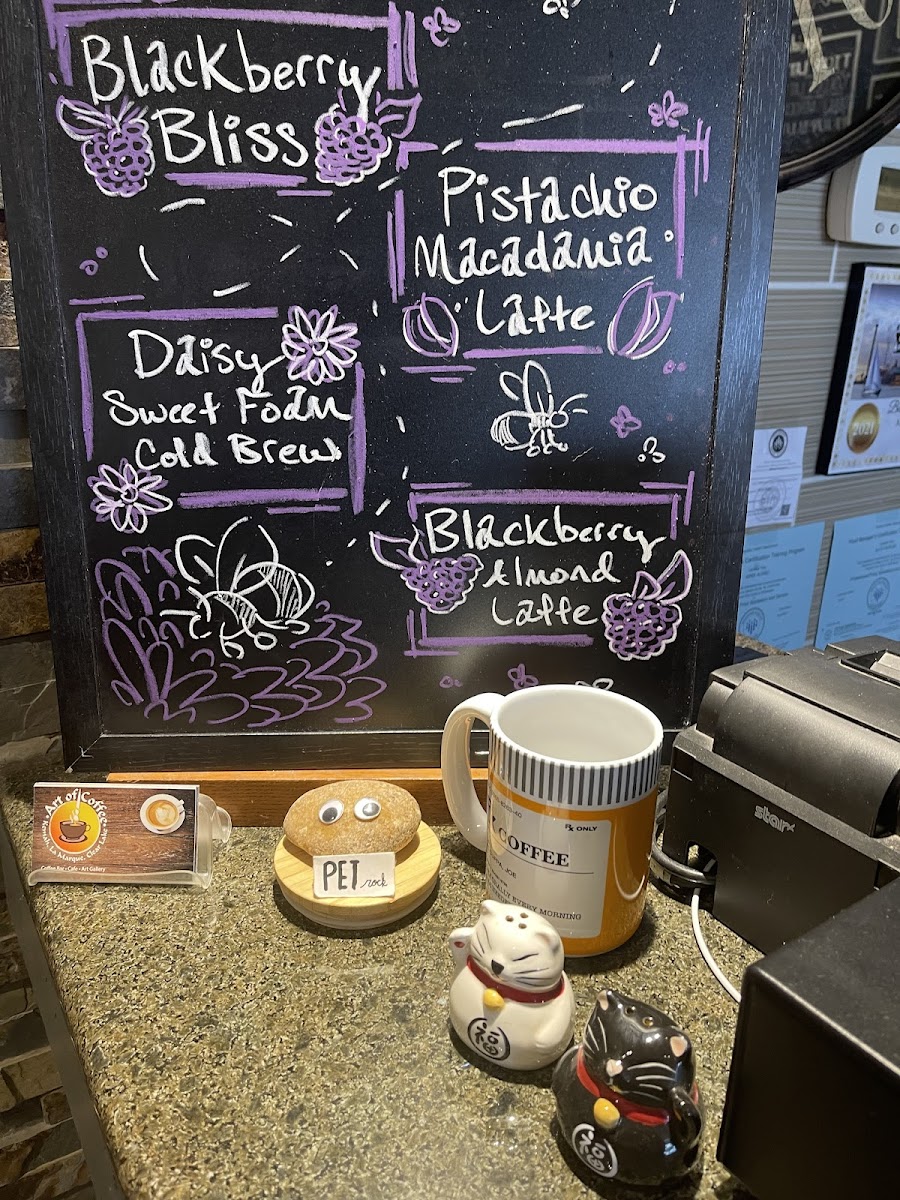 Blackberry
Bliss
Pistachio
Macadamia
Latte
Daisy
Sweet Foam
Cold Brew
Blackberry
Almond
Latte
2021
Art of Coffee
Kemah, La Marque, Clear Lake
Coffee Bar • Cafe • Art Gallery
PET rock
Rx ONLY
COFFEE
JOE
EVERY MORNING
star
福
福